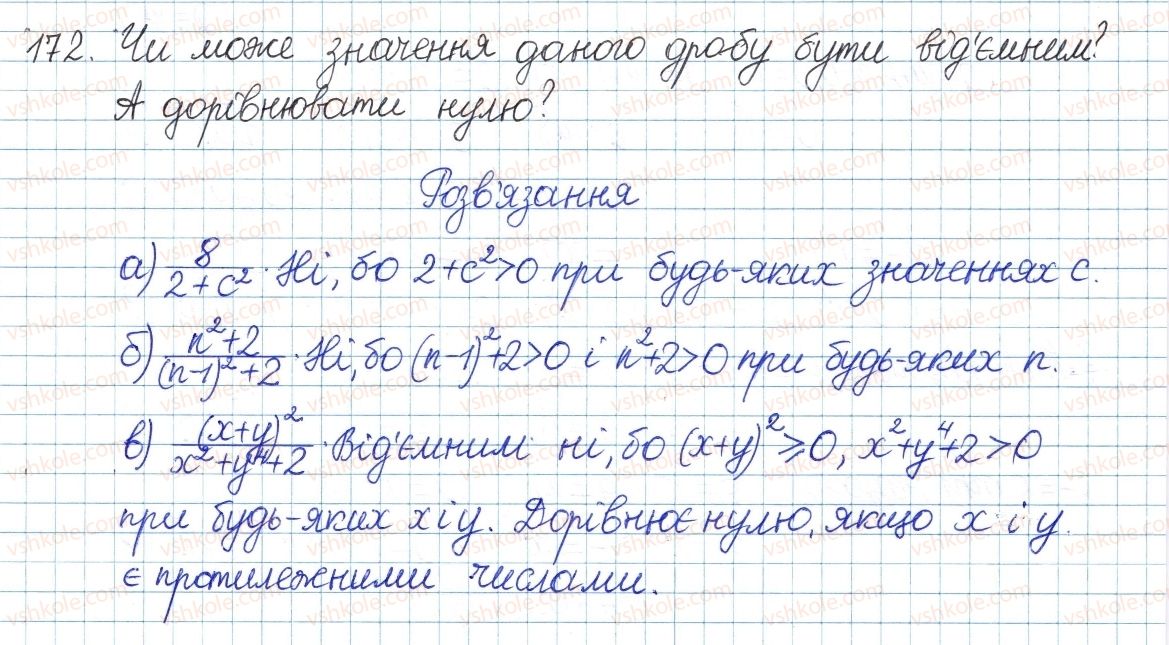 172. Чи може значення даного дробу бути від'ємним?
А дорівнювати нулю?
Розв'язання
а) 8/(2+c²). Ні, бо 2+c²>0 при будь-яких значеннях c.
б) (n²+2)/((n-1)²+2). Ні, бо (n-1)²+2>0 і n²+2>0 при будь-яких n.
в) (x+y)²/(x²+y⁴+2). Від'ємним ні, бо (x+y)²⩾0, x²+y⁴+2>0
при будь-яких x і y. Дорівнює нулю, якщо x і y
є протилежними числами.